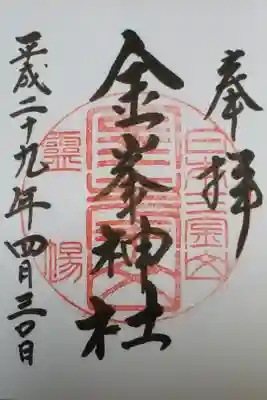 奉拝
金峯神社
平成二十九年四月三〇日
霊場